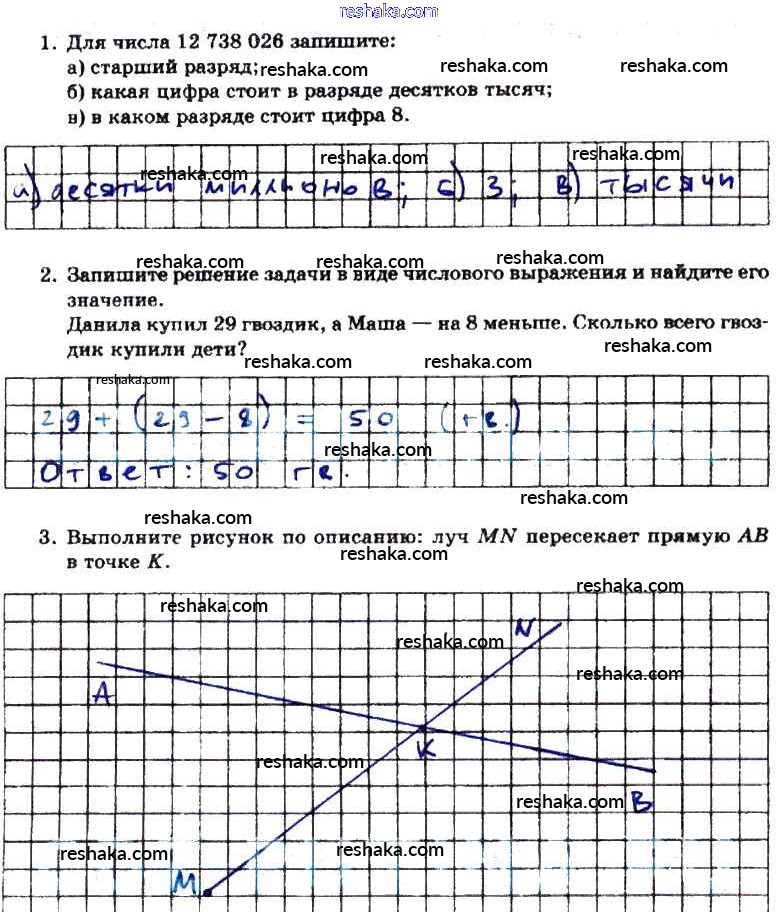 reshaka.com
1. Для числа 12 738 026 запишите:
а) старший разряд; reshaka.com reshaka.com reshaka.com
б) какая цифра стоит в разряде десятков тысяч;
в) в каком разряде стоит цифра 8.
reshaka.com reshaka.com reshaka.com
а) десятки миллионов; б) 3; в) тысячи
reshaka.com reshaka.com reshaka.com
2. Запишите решение задачи в виде числового выражения и найдите его
значение.
Данила купил 29 гвоздик, а Маша — на 8 меньше. Сколько всего гвоз-
дик купили дети? reshaka.com reshaka.com reshaka.com
reshaka.com
29 + (29 - 8) = 50 (гв.)
reshaka.com
Ответ: 50 гв.
reshaka.com
reshaka.com
3. Выполните рисунок по описанию: луч MN пересекает прямую AB
в точке K. reshaka.com
reshaka.com
reshaka.com
N
reshaka.com
reshaka.com
A
K
reshaka.com
reshaka.com B
reshaka.com reshaka.com
M